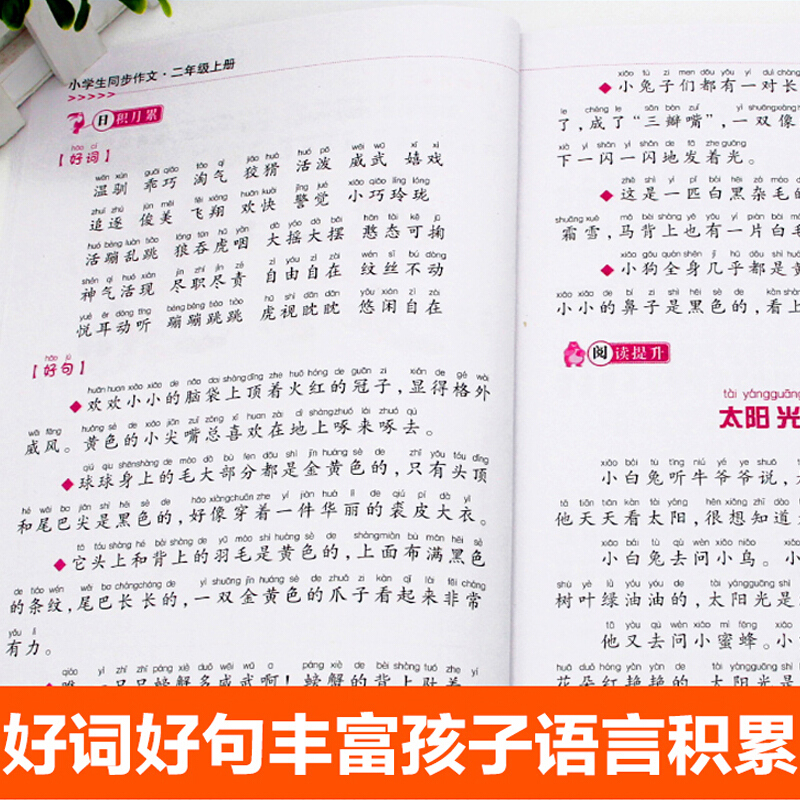 小学生同步作文·二年级上册
>>>>>
日积月累
hǎo cí
【好词】
wēn xùn guāi qiǎo táo qì jiǎo huá huó pō wēi wǔ xī xì
温驯 乖巧 淘气 狡猾 活泼 威武 嬉戏
zhuī zhú jùn měi fēi xiáng huān kuài jǐng jué xiǎo qiǎo líng lóng
追逐 俊美 飞翔 欢快 警觉 小巧玲珑
huó bèng luàn tiào láng tūn hǔ yàn dà yáo dà bǎi hān tài kě jū
活蹦乱跳 狼吞虎咽 大摇大摆 憨态可掬
shén qì huó xiàn jìn zhí jìn zé zì yóu zì zài wén sī bú dòng
神气活现 尽职尽责 自由自在 纹丝不动
yuè ěr dòng tīng bèng bèng tiào tiào hǔ shì dān dān yōu xián zì zài
悦耳动听 蹦蹦跳跳 虎视眈眈 悠闲自在
hǎo jù
【好句】
huān huan xiǎo xiǎo de nǎo dai shàng dǐng zhe huǒ hóng de guān zi xiǎn de gé wài
◆欢欢小小的脑袋上顶着火红的冠子,显得格外
wēi fēng huáng sè de xiǎo jiān zuǐ zǒng xǐ huan zài dì shang zhuó lái zhuó qù
威风。黄色的小尖嘴总喜欢在地上啄来啄去。
qiú qiu shēn shàng de máo dà bù fen dōu shì jīn huáng sè de zhǐ yǒu tóu dǐng
◆球球身上的毛大部分都是金黄色的,只有头顶
hé wěi ba jiān shì hēi sè de hǎo xiàng chuān zhe yí jiàn huá lì de qiú pí dà yī
和尾巴尖是黑色的,好像穿着一件华丽的裘皮大衣。
tā tóu shàng hé bèi shàng de yǔ máo shì huáng sè de shàng miàn bù mǎn hēi sè
◆它头上和背上的羽毛是黄色的,上面布满黑色
de tiáo wén wěi ba cháng cháng de yì shuāng jīn huáng sè de zhuǎ zi kàn qǐ lái fēi cháng
的条纹,尾巴长长的,一双金黄色的爪子看起来非常
yǒu lì
有力。
qiáo yì zhī zhī páng xiè duō wēi wǔ a páng xiè de bèi shàng tuó zhe yí
xiǎo tù zi men dōu yǒu yí duì cháng
◆小兔子们都有一对长
le chéng le sān bàn zuǐ yì shuāng xiàng
了,成了“三瓣嘴”,一双像
xià yì shǎn yì shǎn de fā zhe guāng
下一闪一闪地发着光。
zhè shì yì pǐ bái hēi zá máo de
◆这是一匹白黑杂毛的
shuāng xuě mǎ bèi shàng yě yǒu yí piàn bái máo
霜雪,马背上也有一片白毛
xiǎo gǒu quán shēn jī hū dōu shì
◆小狗全身几乎都是黄
xiǎo xiǎo de bí zi shì hēi sè de kàn shàng
小小的鼻子是黑色的,看上
阅读提升
tài yáng guāng
太阳光
xiǎo bái tù tīng niú yé ye shuō
小白兔听牛爷爷说,
tā tiān tiān kàn tài yáng hěn xiǎng zhī dào
他天天看太阳,很想知道
xiǎo bái tù qù wèn xiǎo niǎo xiǎo
小白兔去问小鸟。小
shù yè lǜ yóu yóu de tài yáng guāng shì
树叶绿油油的,太阳光是
tā yòu qù wèn xiǎo mì fēng
他又去问小蜜蜂。小
huā duǒ hóng yàn yàn de tài yáng guāng shì
花朵红艳艳的,太阳光是
好词好句丰富孩子语言积累